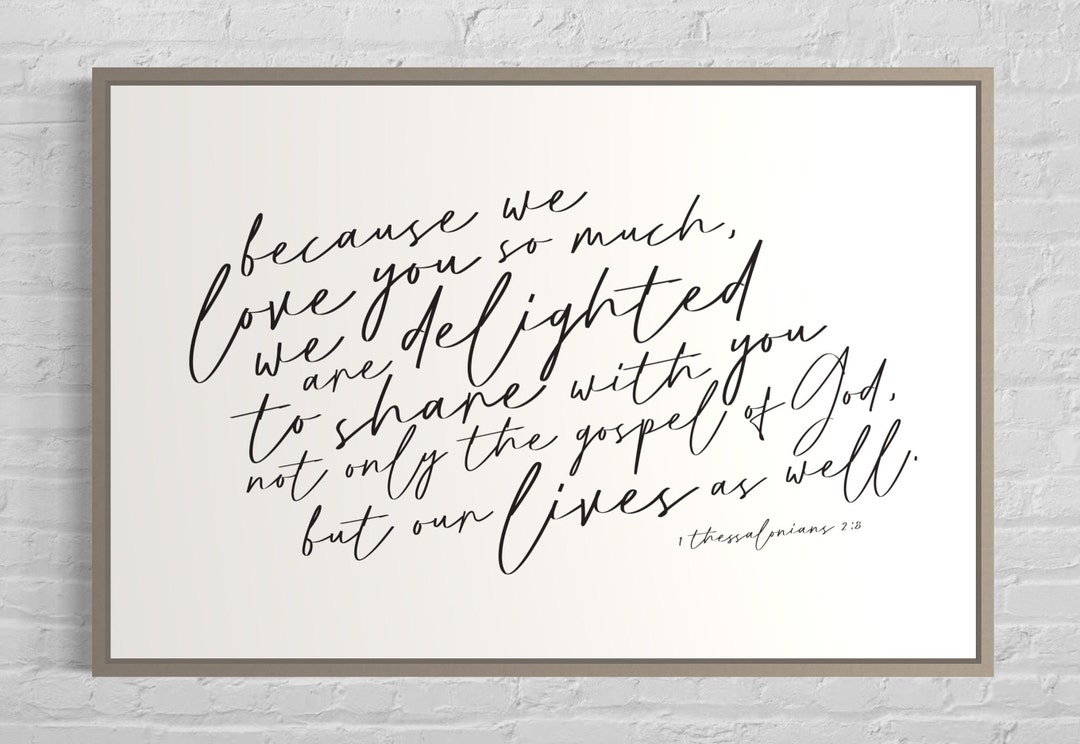 because we
love you so much,
we are delighted
to share with you
not only the gospel of God,
but our lives as well.
1 thessalonians 2:8